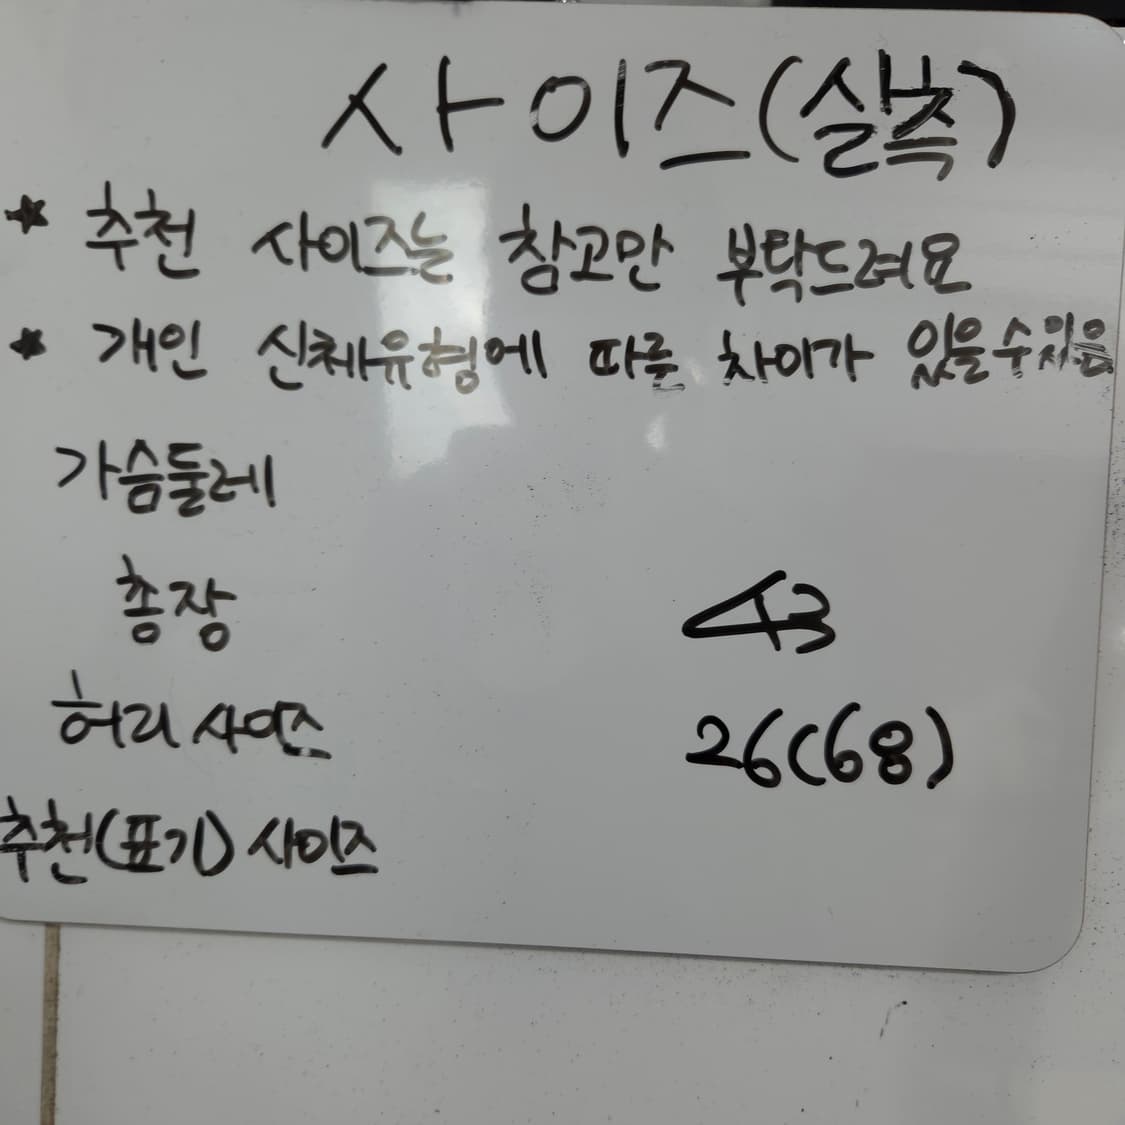 사이즈(실측)
* 추천 사이즈는 참고만 부탁드려요
* 개인 신체유형에 따른 차이가 있을수있음
가슴둘레
총장 43
허리 사이즈 26(68)
추천(표기) 사이즈